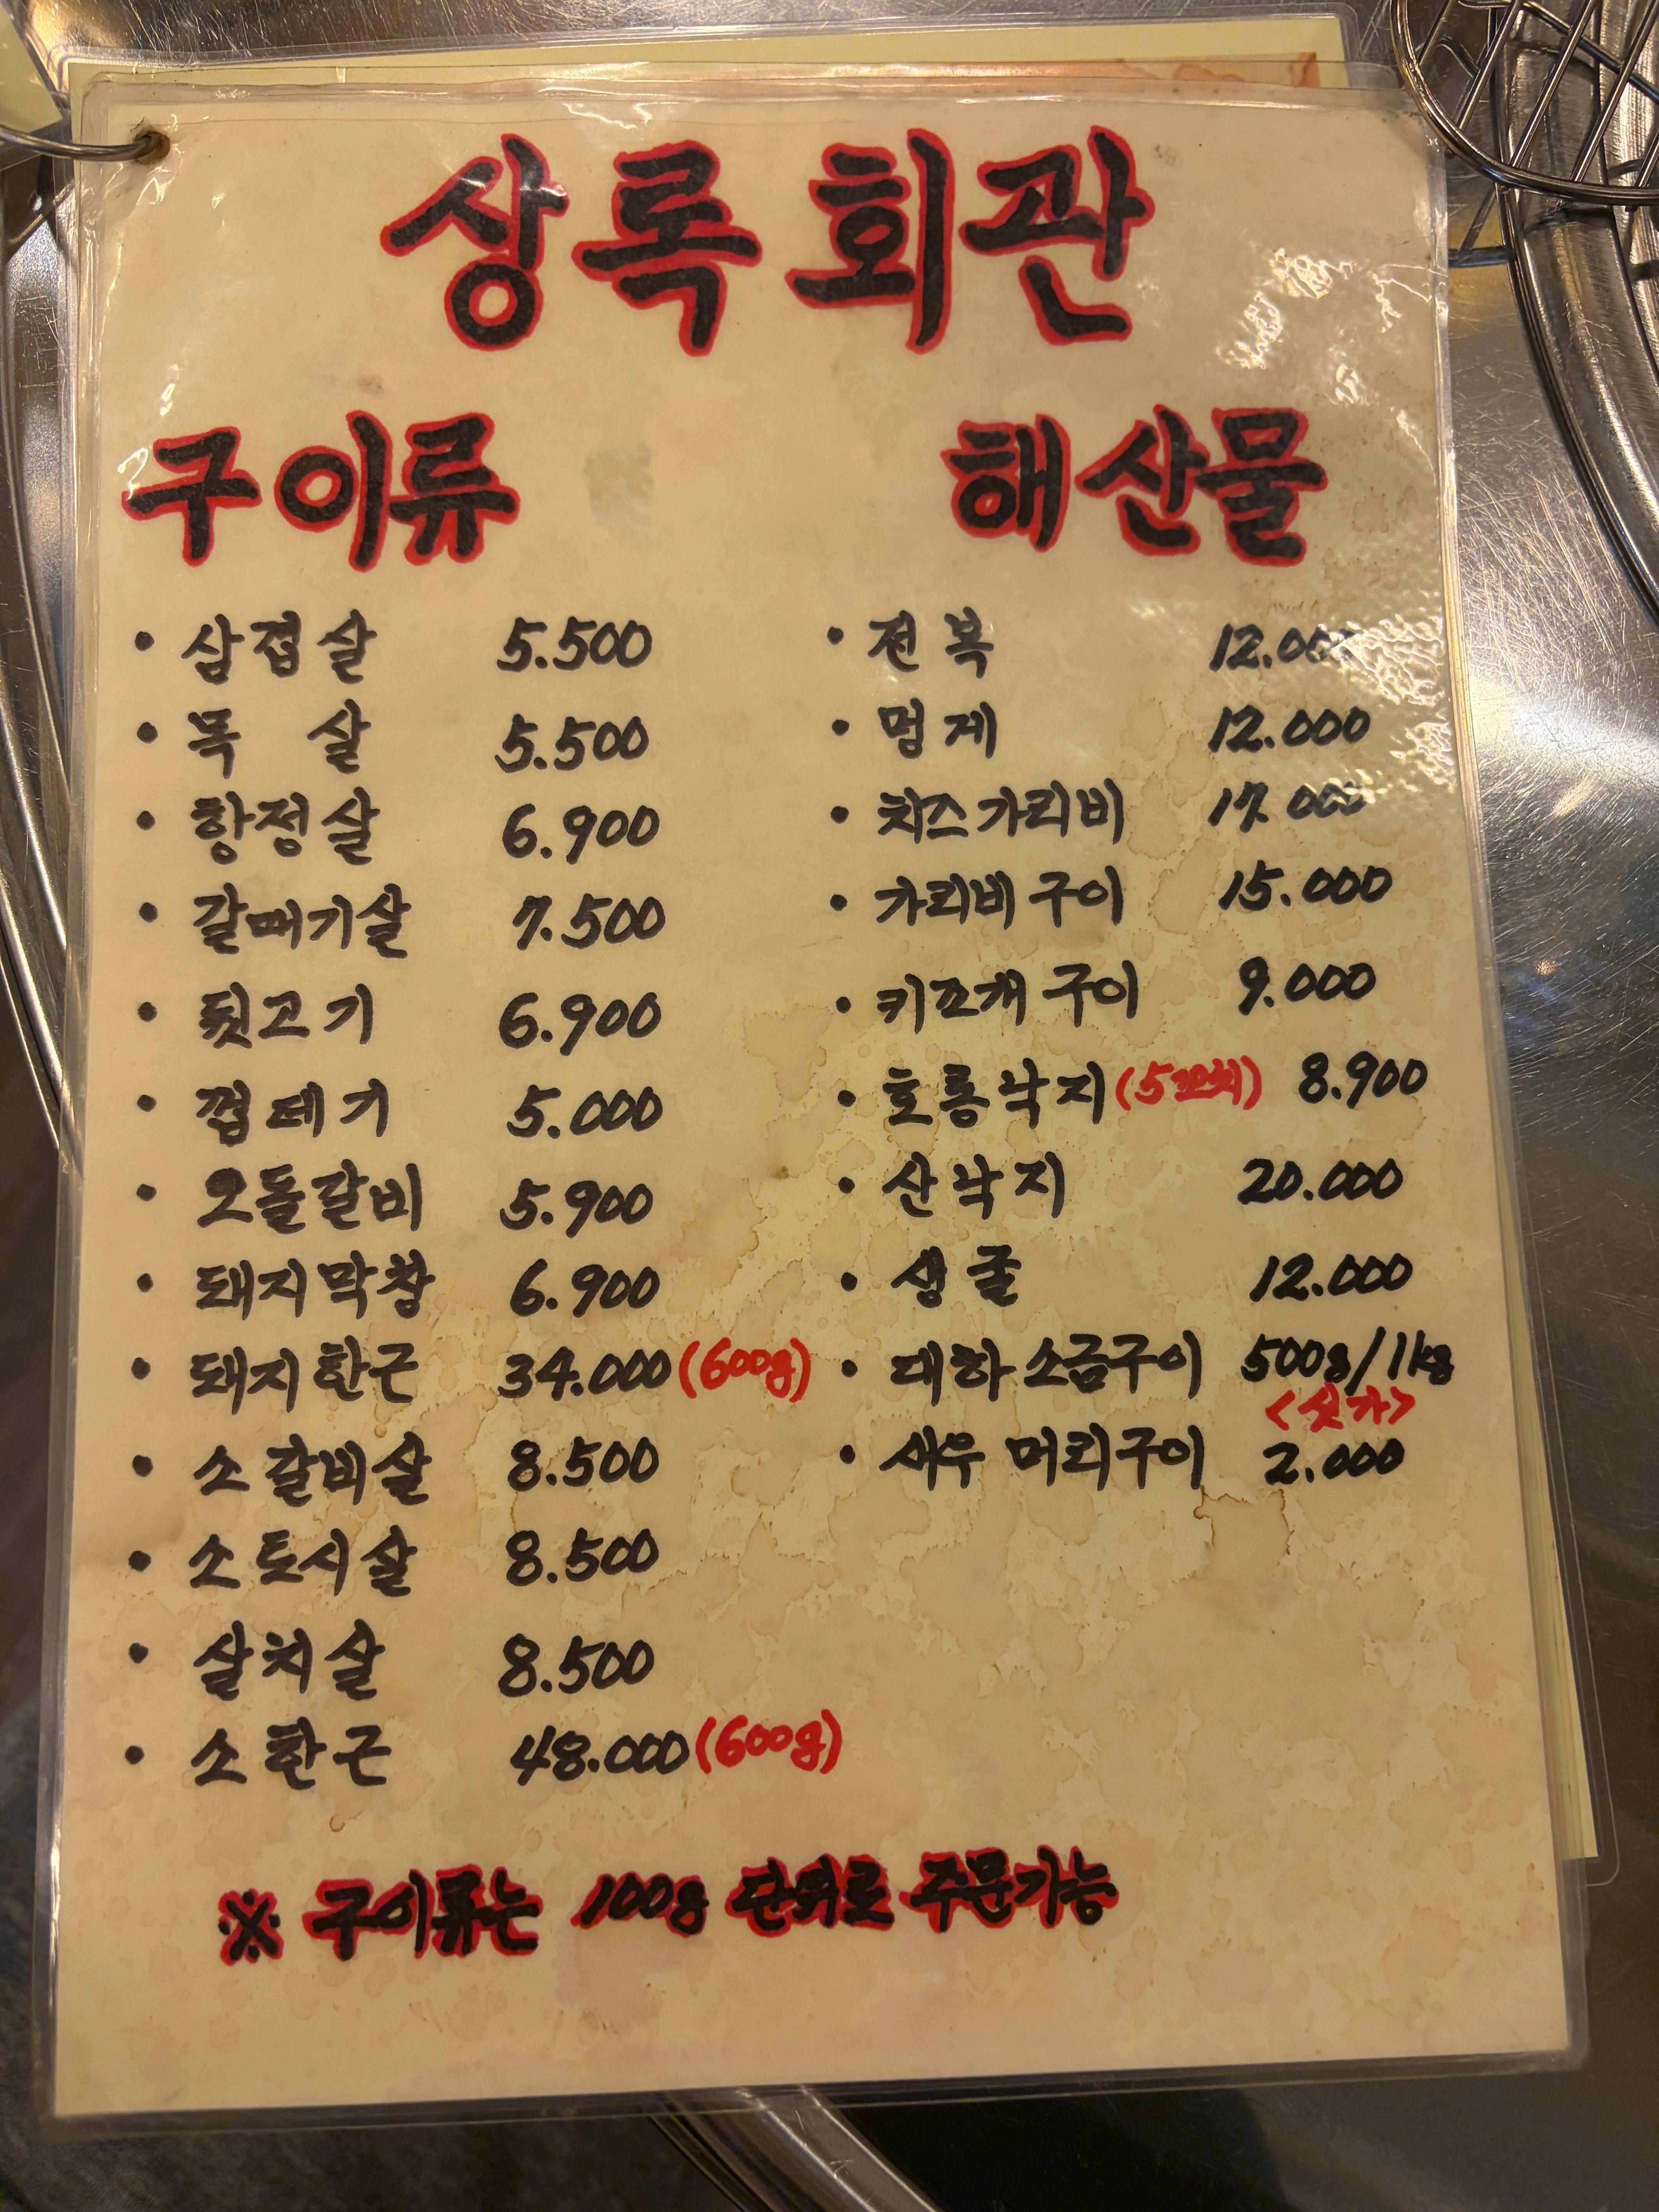 상록회관
구이류
· 삼겹살 5.500
· 목살 5.500
· 항정살 6.900
· 갈매기살 7.500
· 뒷고기 6.900
· 껍데기 5.000
· 오돌갈비 5.900
· 돼지막창 6.900
· 돼지한근 34.000(600g)
· 소갈비살 8.500
· 소토시살 8.500
· 살치살 8.500
· 소한근 48.000(600g)
해산물
· 전복 12.000
· 멍게 12.000
· 치즈가리비 17.000
· 가리비구이 15.000
· 키조개구이 9.000
· 호롱낙지(5꼬치) 8.900
· 산낙지 20.000
· 생굴 12.000
· 대하소금구이 500g/1kg
<싯가>
· 새우머리구이 2.000
※ 구이류는 100g 단위로 주문가능